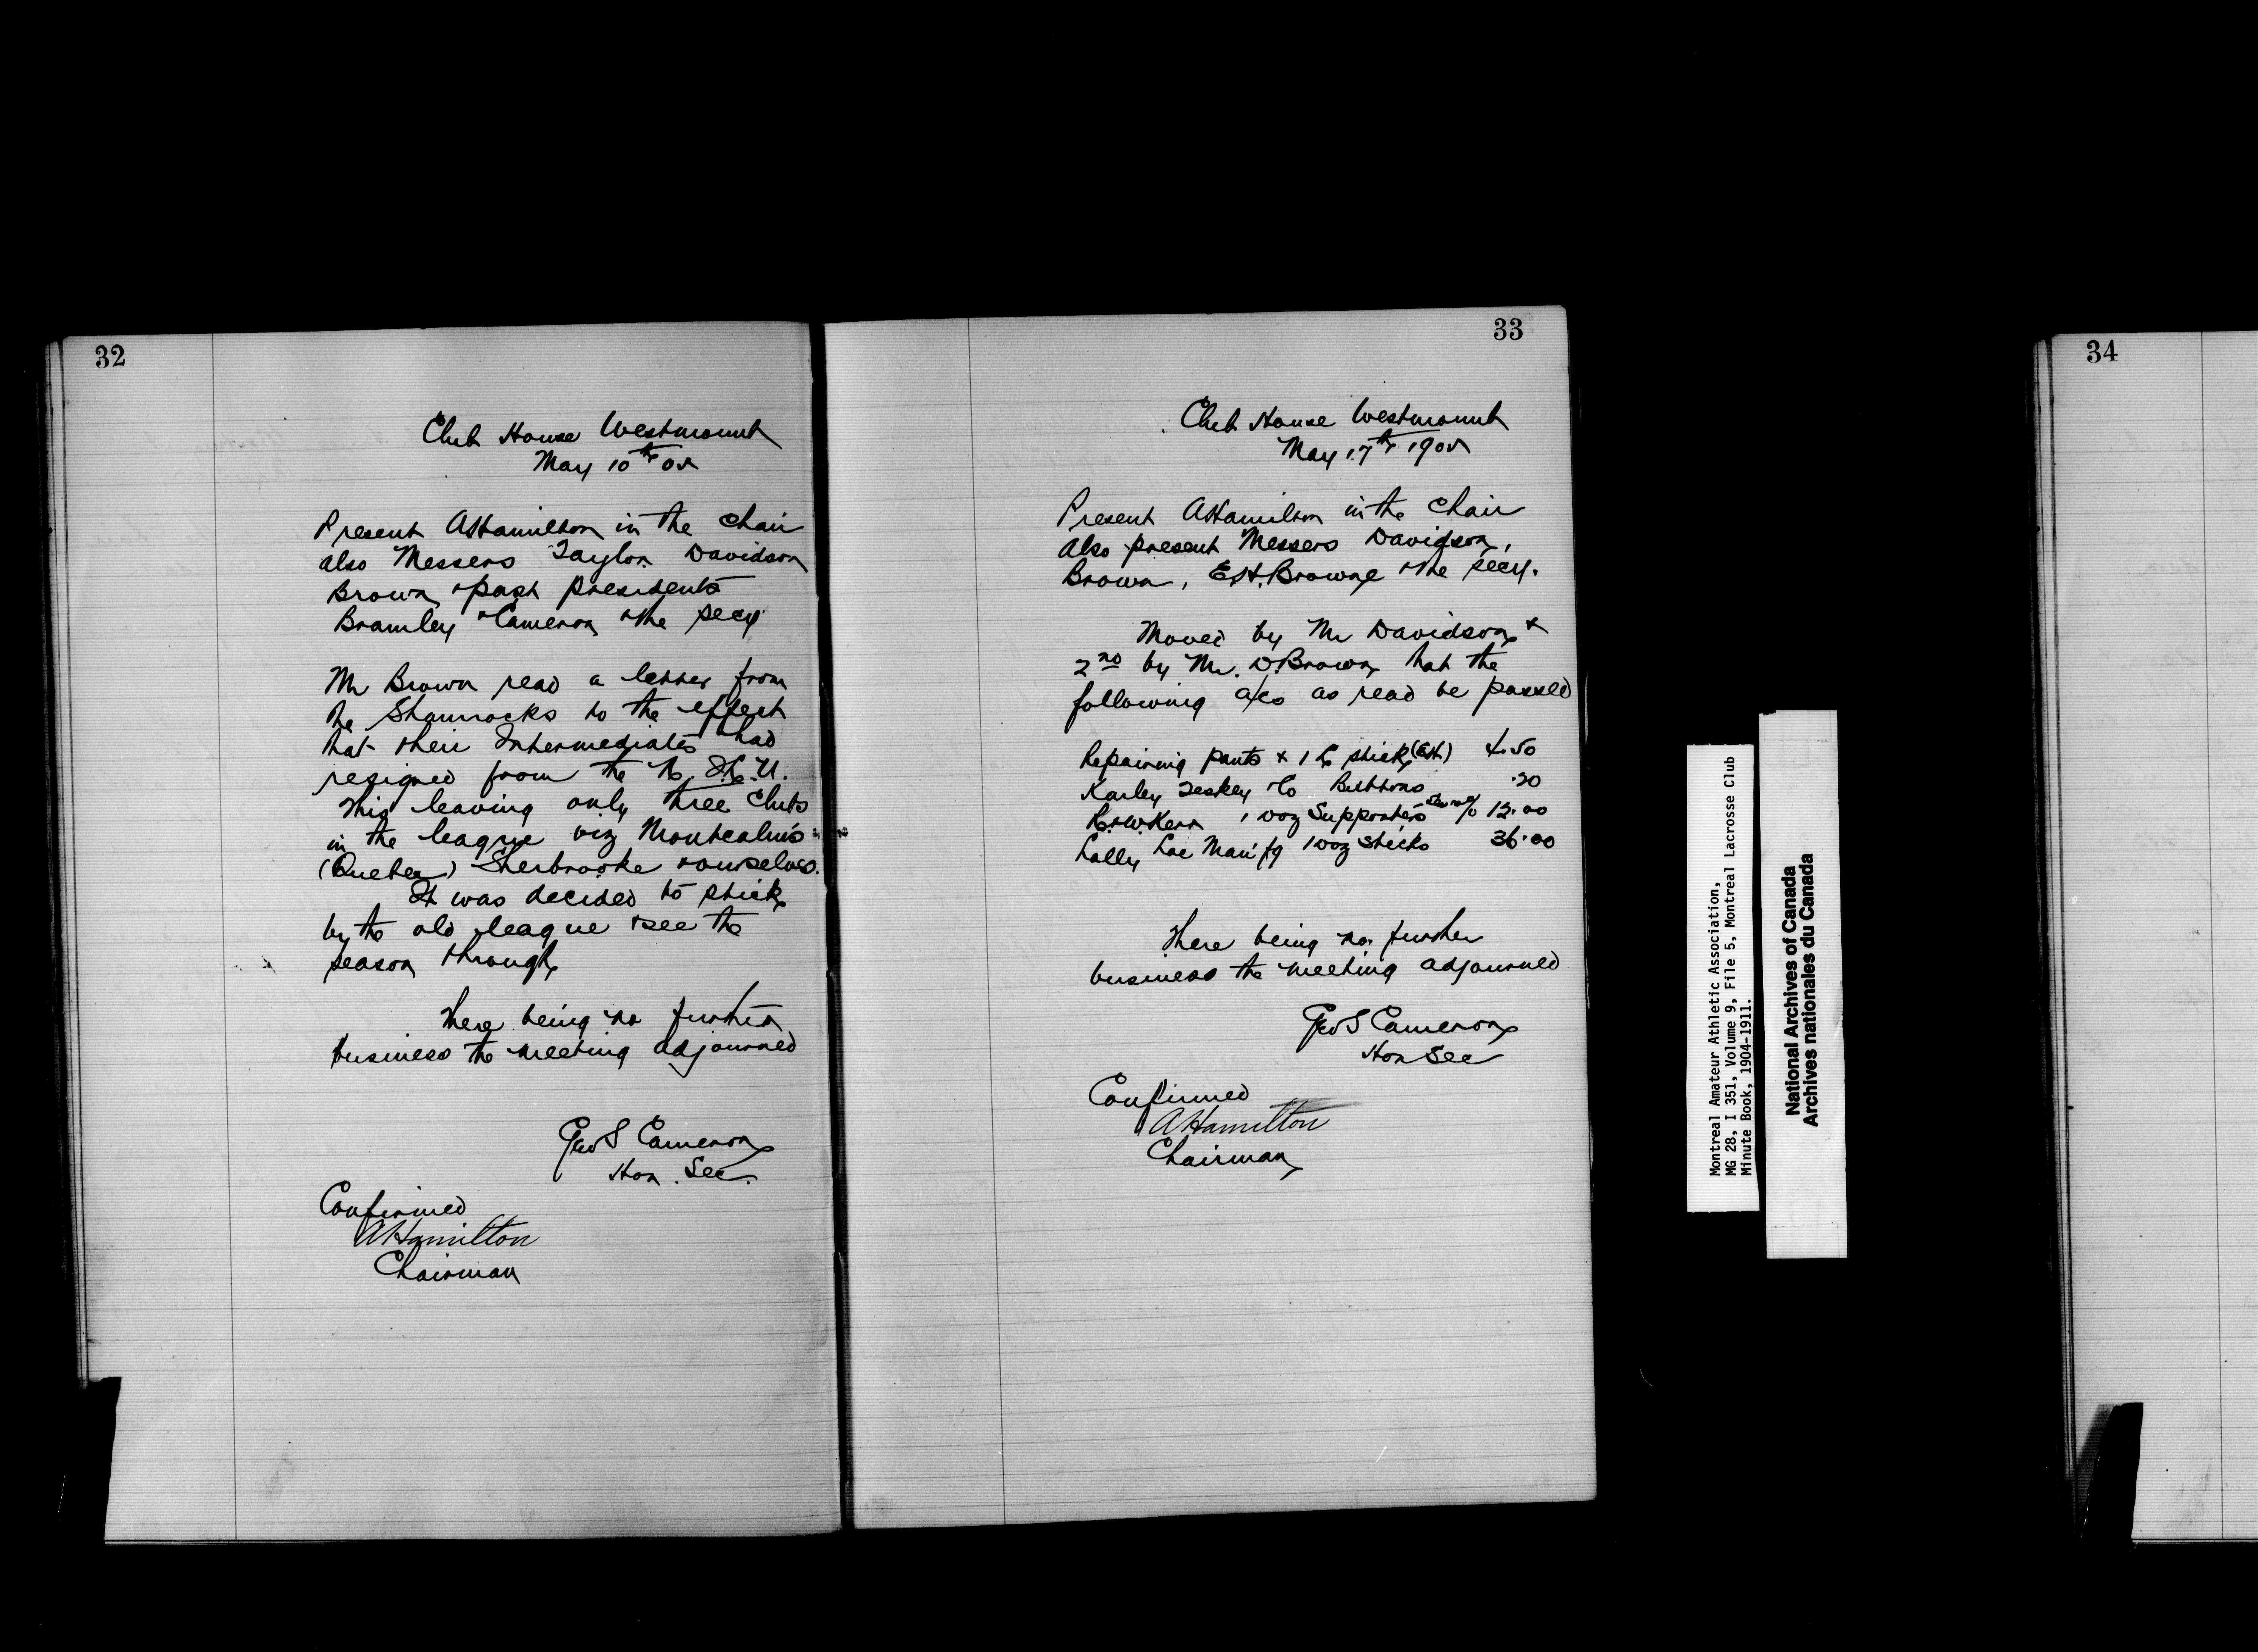 32
Club House Westmount
May 10th 05
Present A Hamilton in the chair
also Messers Taylor Davidson
Brown & past presidents
Bramley & Cameron & the secy
Mr Brown read a letter from
the Shamrocks to the effect
that their Intermediates had
resigned from the
This leaving only three clubs
in the league viz Montcalm's
(Quebec) Sherbrooke & ourselves.
It was decided to stick
by the old league & see the
season through
There being no further
business the meeting adjourned
Geo S Cameron
Hon. Sec.
Confirmed
A Hamilton
Chairman
33
Club House Westmount
May 17th 1905
Present A Hamilton in the Chair
Also present Messers Davidson,
Brown, E.H. Browne & the secy.
Moved by Mr Davidson &
2nd by Mr. D. Brown that the
following a/cs as read be passed
Repairing pants & 1 stick 4.50
Teskey Co Buttons .20
R & W Kerr 1 doz Supporters 12.00
Lally Lac Manifg 1 doz sticks 36.00
There being no further
business the meeting adjourned
Geo S Cameron
Hon Sec
Confirmed
A Hamilton
Chairman
Montreal Amateur Athletic Association,
MG 28, I 351, Volume 9, File 5, Montreal Lacrosse Club
Minute Book, 1904-1911.
National Archives of Canada
Archives nationales du Canada
34